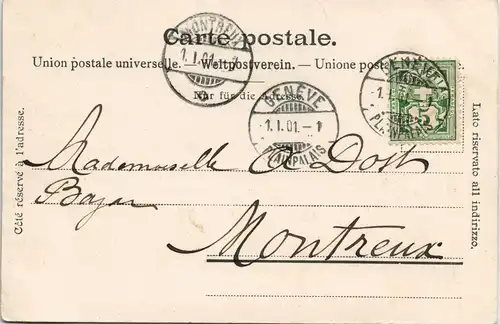 Carte postale.
Union postale universelle. — Weltpostverein. — Unione postale
Nur für die Adresse
MONTREUX
1.I.01.-7
GENÈVE
-1.I.01.-1
PLAINPALAIS
GENÈVE
-1.I.01.-1
PLAINPALAIS
Côté réservé à l'adresse.
Lato riservato all indirizzo.
Mademoiselle A. Dost
Bazar
Montreux